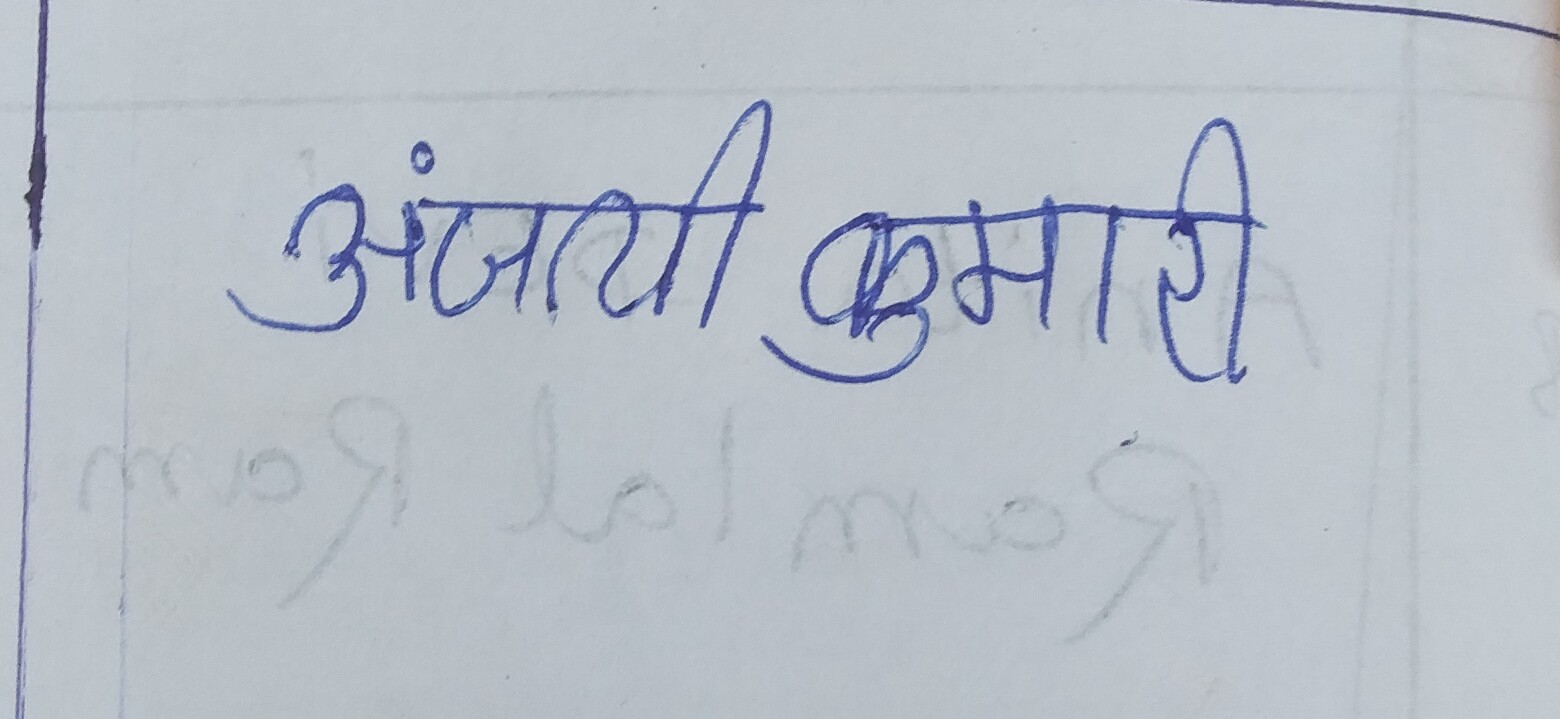 अंजायी कुमारी